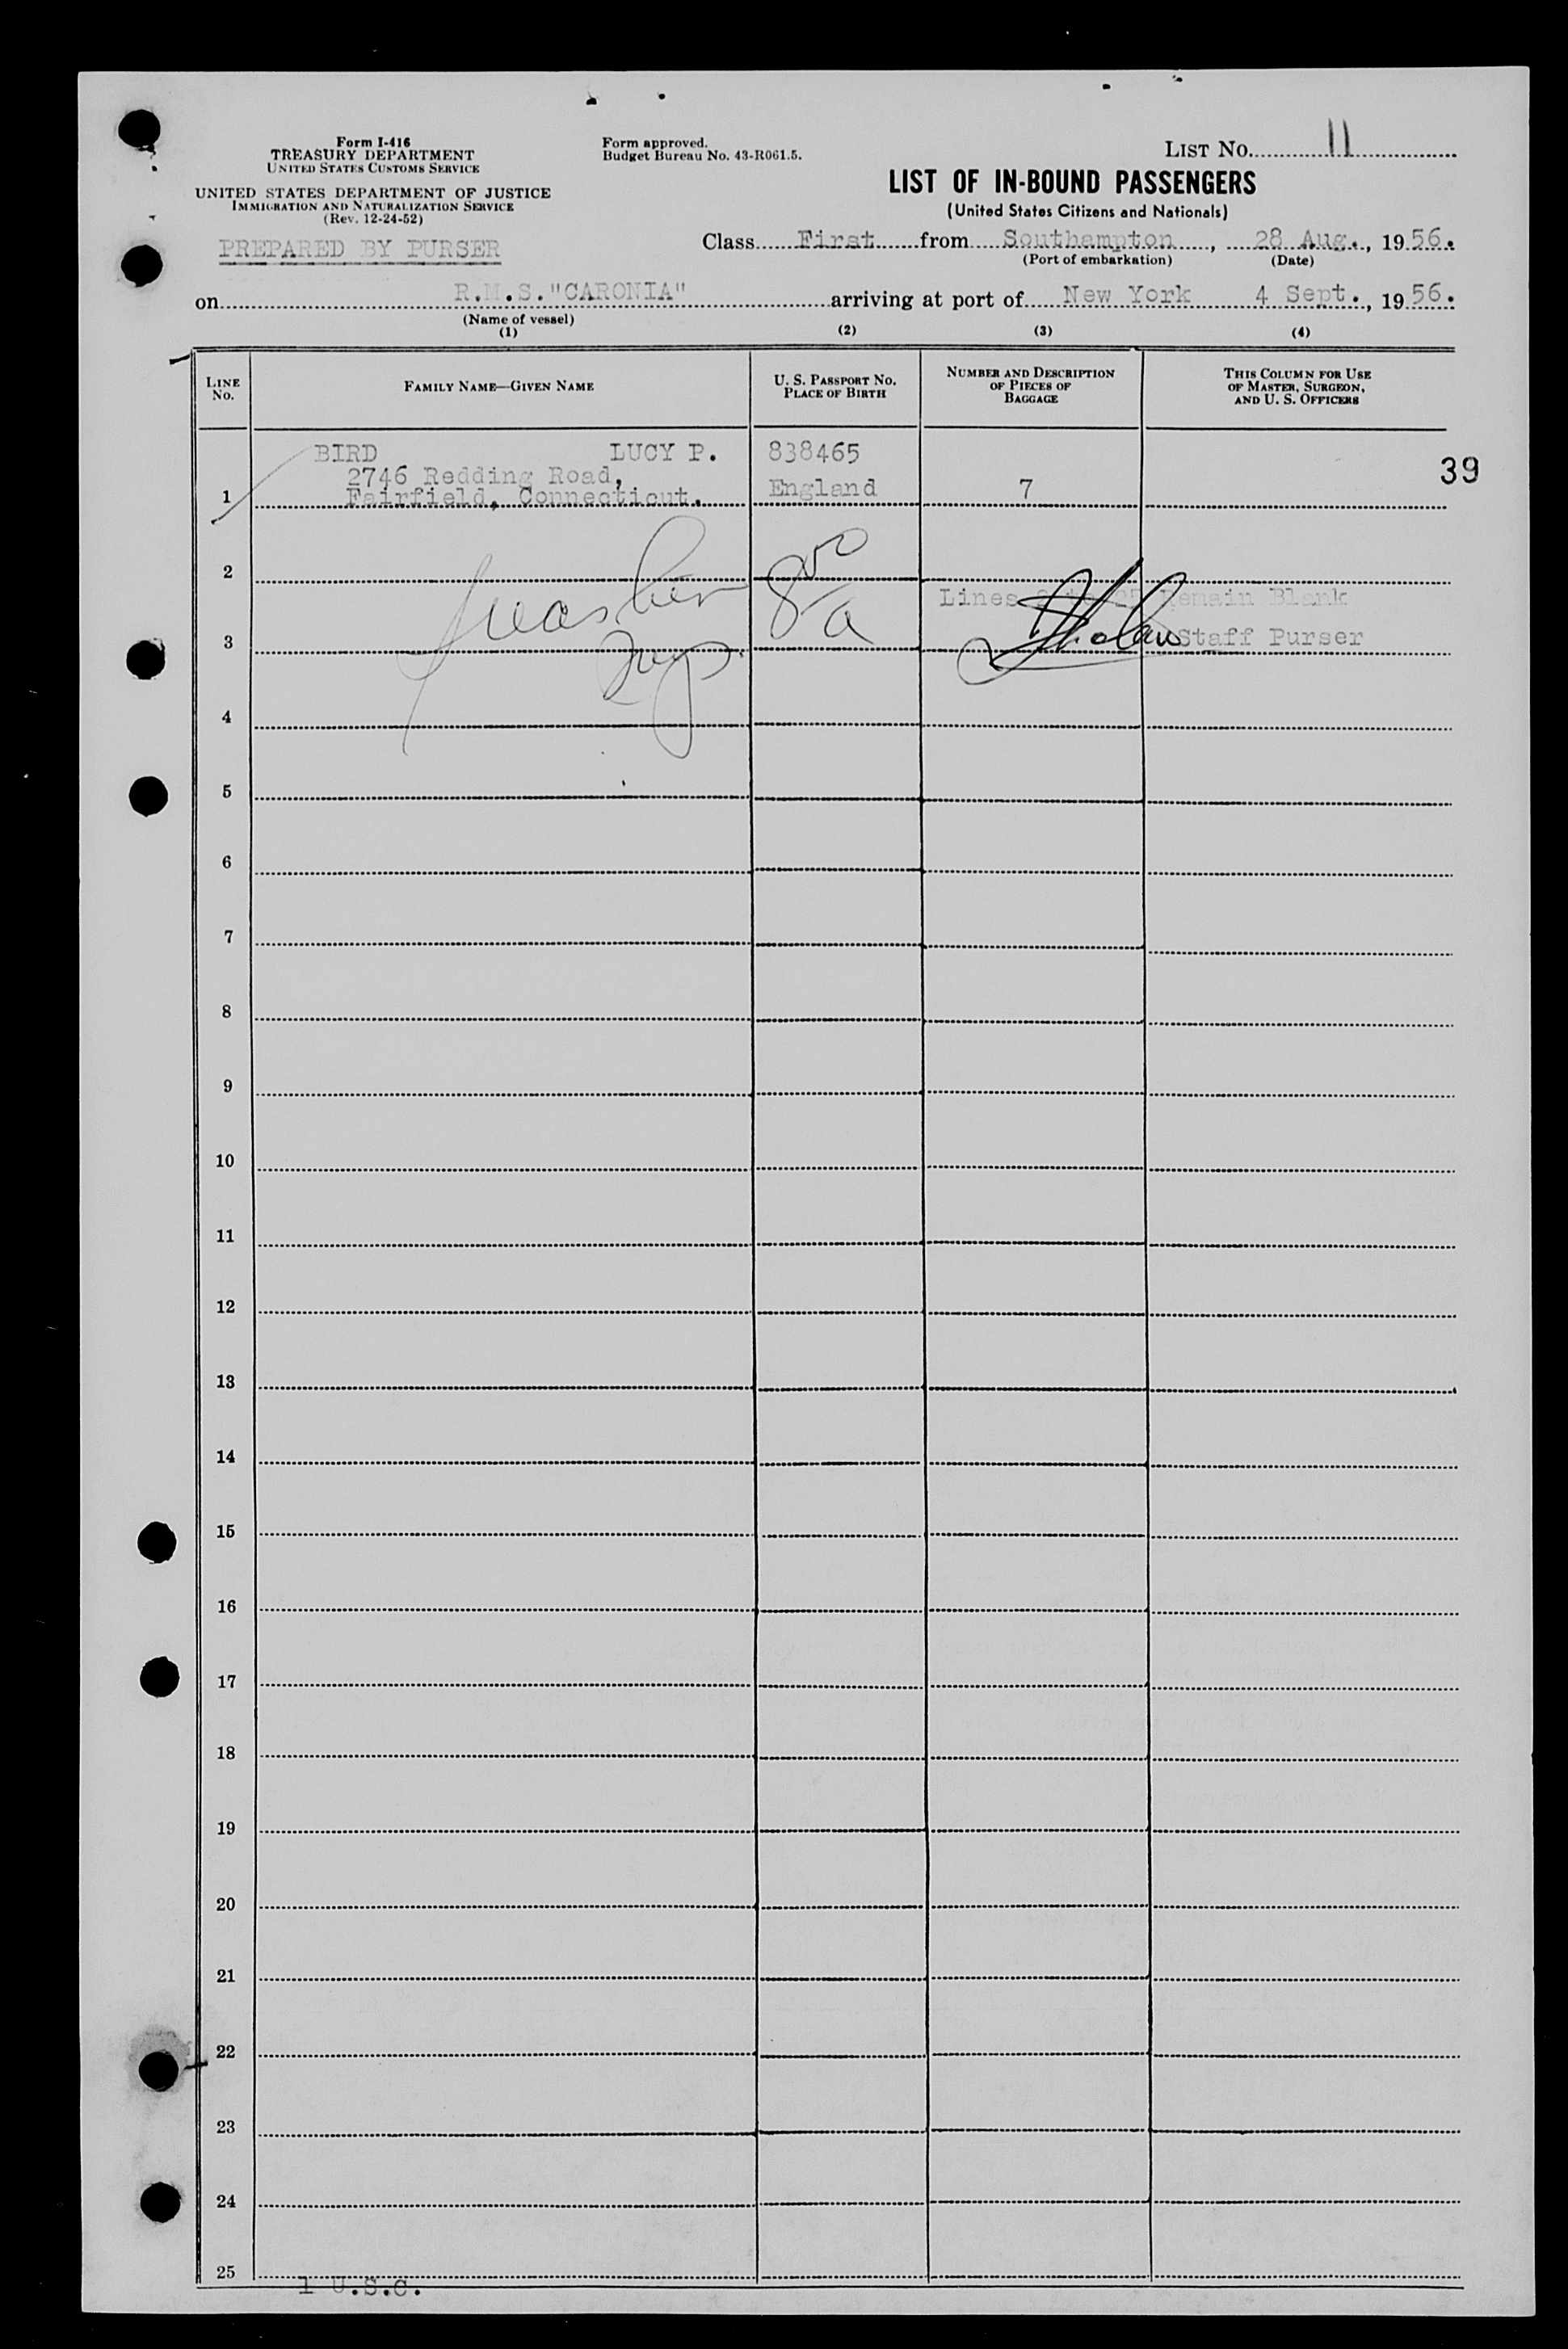 Form I-416
TREASURY DEPARTMENT
UNITED STATES CUSTOMS SERVICE
UNITED STATES DEPARTMENT OF JUSTICE
IMMIGRATION AND NATURALIZATION SERVICE
(Rev. 12-24-52)
PREPARED BY PURSER
Form approved.
Budget Bureau No. 43-R061.5.
LIST No. 11
LIST OF IN-BOUND PASSENGERS
(United States Citizens and Nationals)
Class First from Southampton, 28 Aug., 1956.
(Port of embarkation) (Date)
on R.M.S. "CARONIA" arriving at port of New York 4 Sept., 1956.
(Name of vessel)
(1) (2) (3) (4)
LINE No. FAMILY NAME—GIVEN NAME U. S. PASSPORT No. PLACE OF BIRTH NUMBER AND DESCRIPTION OF PIECES OF BAGGAGE THIS COLUMN FOR USE OF MASTER, SURGEON, AND U. S. OFFICERS
BIRD LUCY P. 838465
2746 Redding Road,
1 Fairfield, Connecticut. England 7 39
2
Lines Remain Blank
3 Staff Purser
4
5
6
7
8
9
10
11
12
13
14
15
16
17
18
19
20
21
22
23
24
25
1 U.S.C.